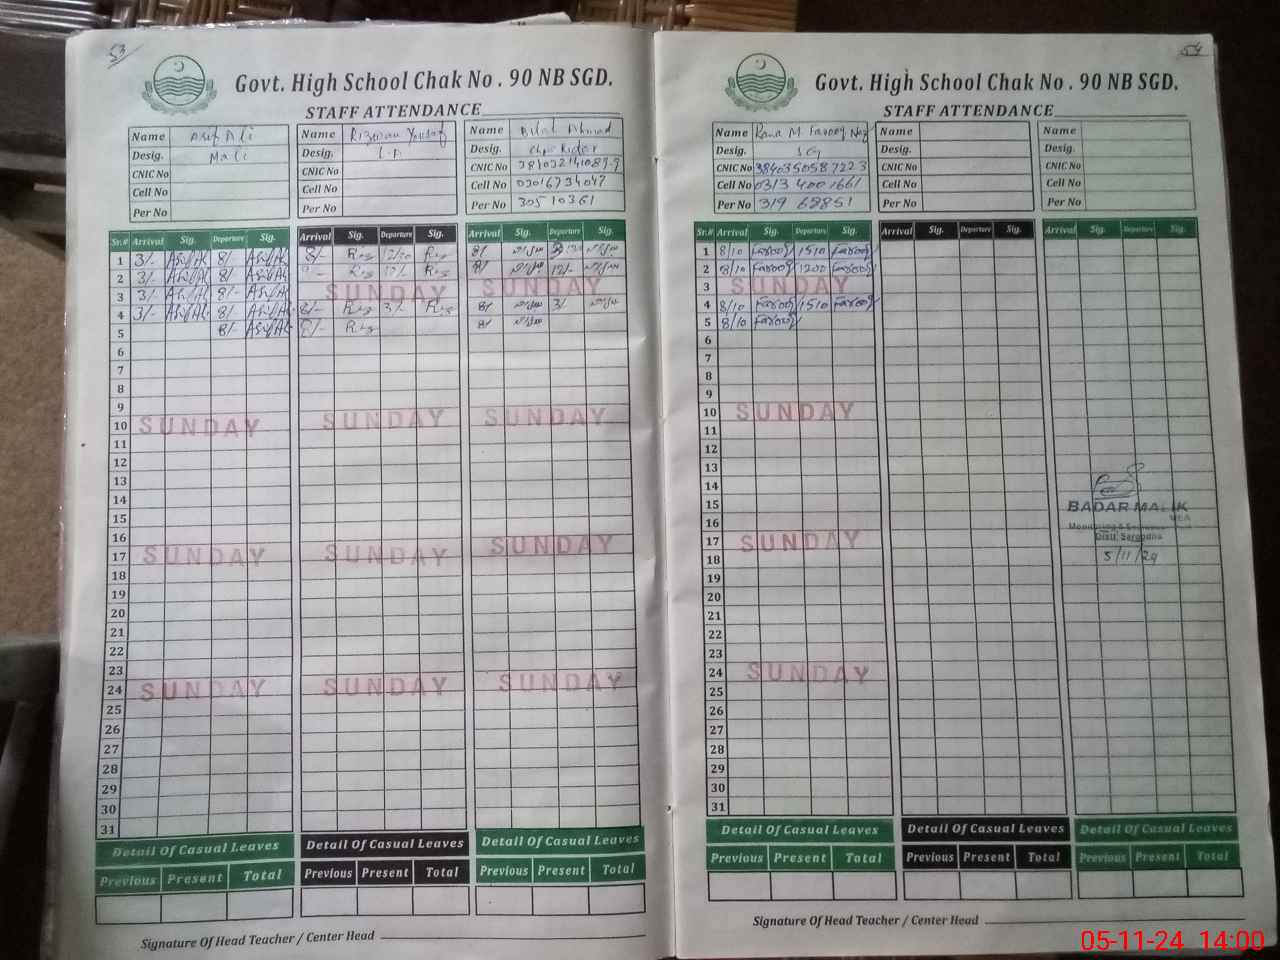 53
Govt. High School Chak No . 90 NB SGD.
STAFF ATTENDANCE
Name Asif Ali
Desig. Mali
CNIC No
Cell No
Per No
Name Rizwan Yousaf
Desig.
CNIC No
Cell No
Per No
Name Bilal Ahmad
Desig.
CNIC No
Cell No 03016734047
Per No 30510361
Sr.# Arrival Sig. Departure Sig. Arrival Sig. Departure Sig. Arrival Sig. Departure Sig.
1 3/- Asif Ali 8/- Asif Ali 8/- Riz Riz 8/
2 3/- Asif Ali 8/- Asif Ali Riz Riz 12/-
3 3/- Asif Ali 8/- Asif Ali SUNDAY SUNDAY
4 3/- Asif Ali 8/- Asif Ali 8/- Riz 3/- Riz 8/ 3/
5 8/- Asif Ali 8/- Riz 8/
6
7
8
9
10 SUNDAY SUNDAY SUNDAY
11
12
13
14
15
16
17 SUNDAY SUNDAY SUNDAY
18
19
20
21
22
23
24 SUNDAY SUNDAY SUNDAY
25
26
27
28
29
30
31
Detail Of Casual Leaves Detail Of Casual Leaves Detail Of Casual Leaves
Previous Present Total Previous Present Total Previous Present Total
Signature Of Head Teacher / Center Head
54
Govt. High School Chak No . 90 NB SGD.
STAFF ATTENDANCE
Name Rana M Farooq Naz
Desig.
CNIC No 3840350587223
Cell No 0313 4001661
Per No 319 68851
Name
Desig.
CNIC No
Cell No
Per No
Name
Desig.
CNIC No
Cell No
Per No
Sr.# Arrival Sig. Departure Sig. Arrival Sig. Departure Sig. Arrival Sig. Departure Sig.
1 8/10 Farooq 1510 Farooq
2 8/10 Farooq 1200 Farooq
3 SUNDAY
4 8/10 Farooq 1510 Farooq
5 8/10 Farooq
6
7
8
9
10 SUNDAY
11
12
13
14
15
16
17 SUNDAY
18
19
20
21
22
23
24 SUNDAY
25
26
27
28
29
30
31
BADAR MALIK
MEA
Distt. Sargodha
5/11/24
Detail Of Casual Leaves Detail Of Casual Leaves Detail Of Casual Leaves
Previous Present Total Previous Present Total Previous Present Total
Signature Of Head Teacher / Center Head
05-11-24 14:00